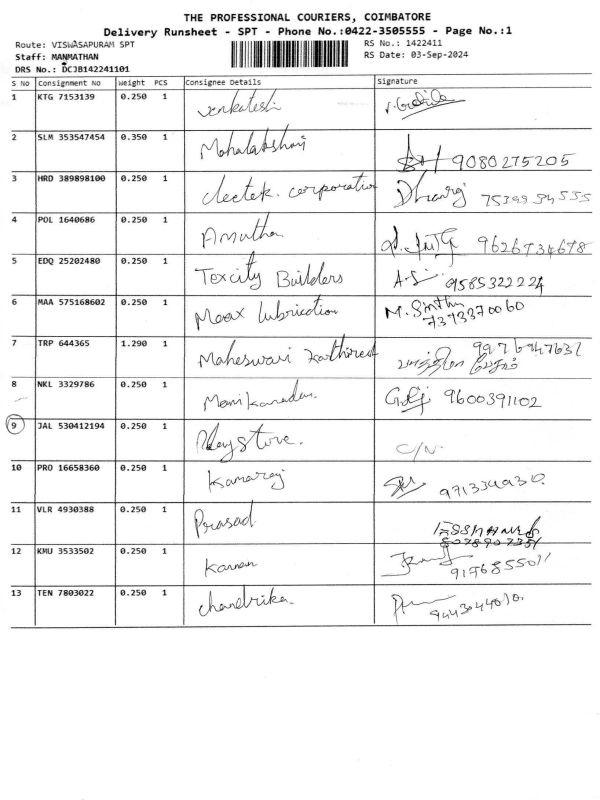 THE PROFESSIONAL COURIERS, COIMBATORE
Delivery Runsheet - SPT - Phone No.:0422-3505555 - Page No.:1
Route: VISWASAPURAM SPT RS No.: 1422411
Staff: MANMATHAN RS Date: 03-Sep-2024
DRS No.: DCJB142241101
S No Consignment No Weight PCS Consignee Details Signature
1 KTG 7153139 0.250 1 Venkatesh
2 SLM 353547454 0.350 1 Mahalakshmi 9080275205
3 HRD 389898100 0.250 1 clectek. corporation Dhanraj
4 POL 1640686 0.250 1 Amutha 9626734678
5 EDQ 25202480 0.250 1 Texcity Builders A.S. 9585322224
6 MAA 575168602 0.250 1 Moax lubrication M. Sinthu
7393370060
7 TRP 644365 1.290 1 Maheswari Kathiresh 9976947631
8 NKL 3329786 0.250 1 Manikandan. 9600391102
9 JAL 530412194 0.250 1 Playstore. C/N.
10 PRO 16658360 0.250 1 Kamaraj
11 VLR 4930388 0.250 1 Prasad
12 KMU 3533502 0.250 1 Kannan 9176855011
13 TEN 7803022 0.250 1 Chandrika.